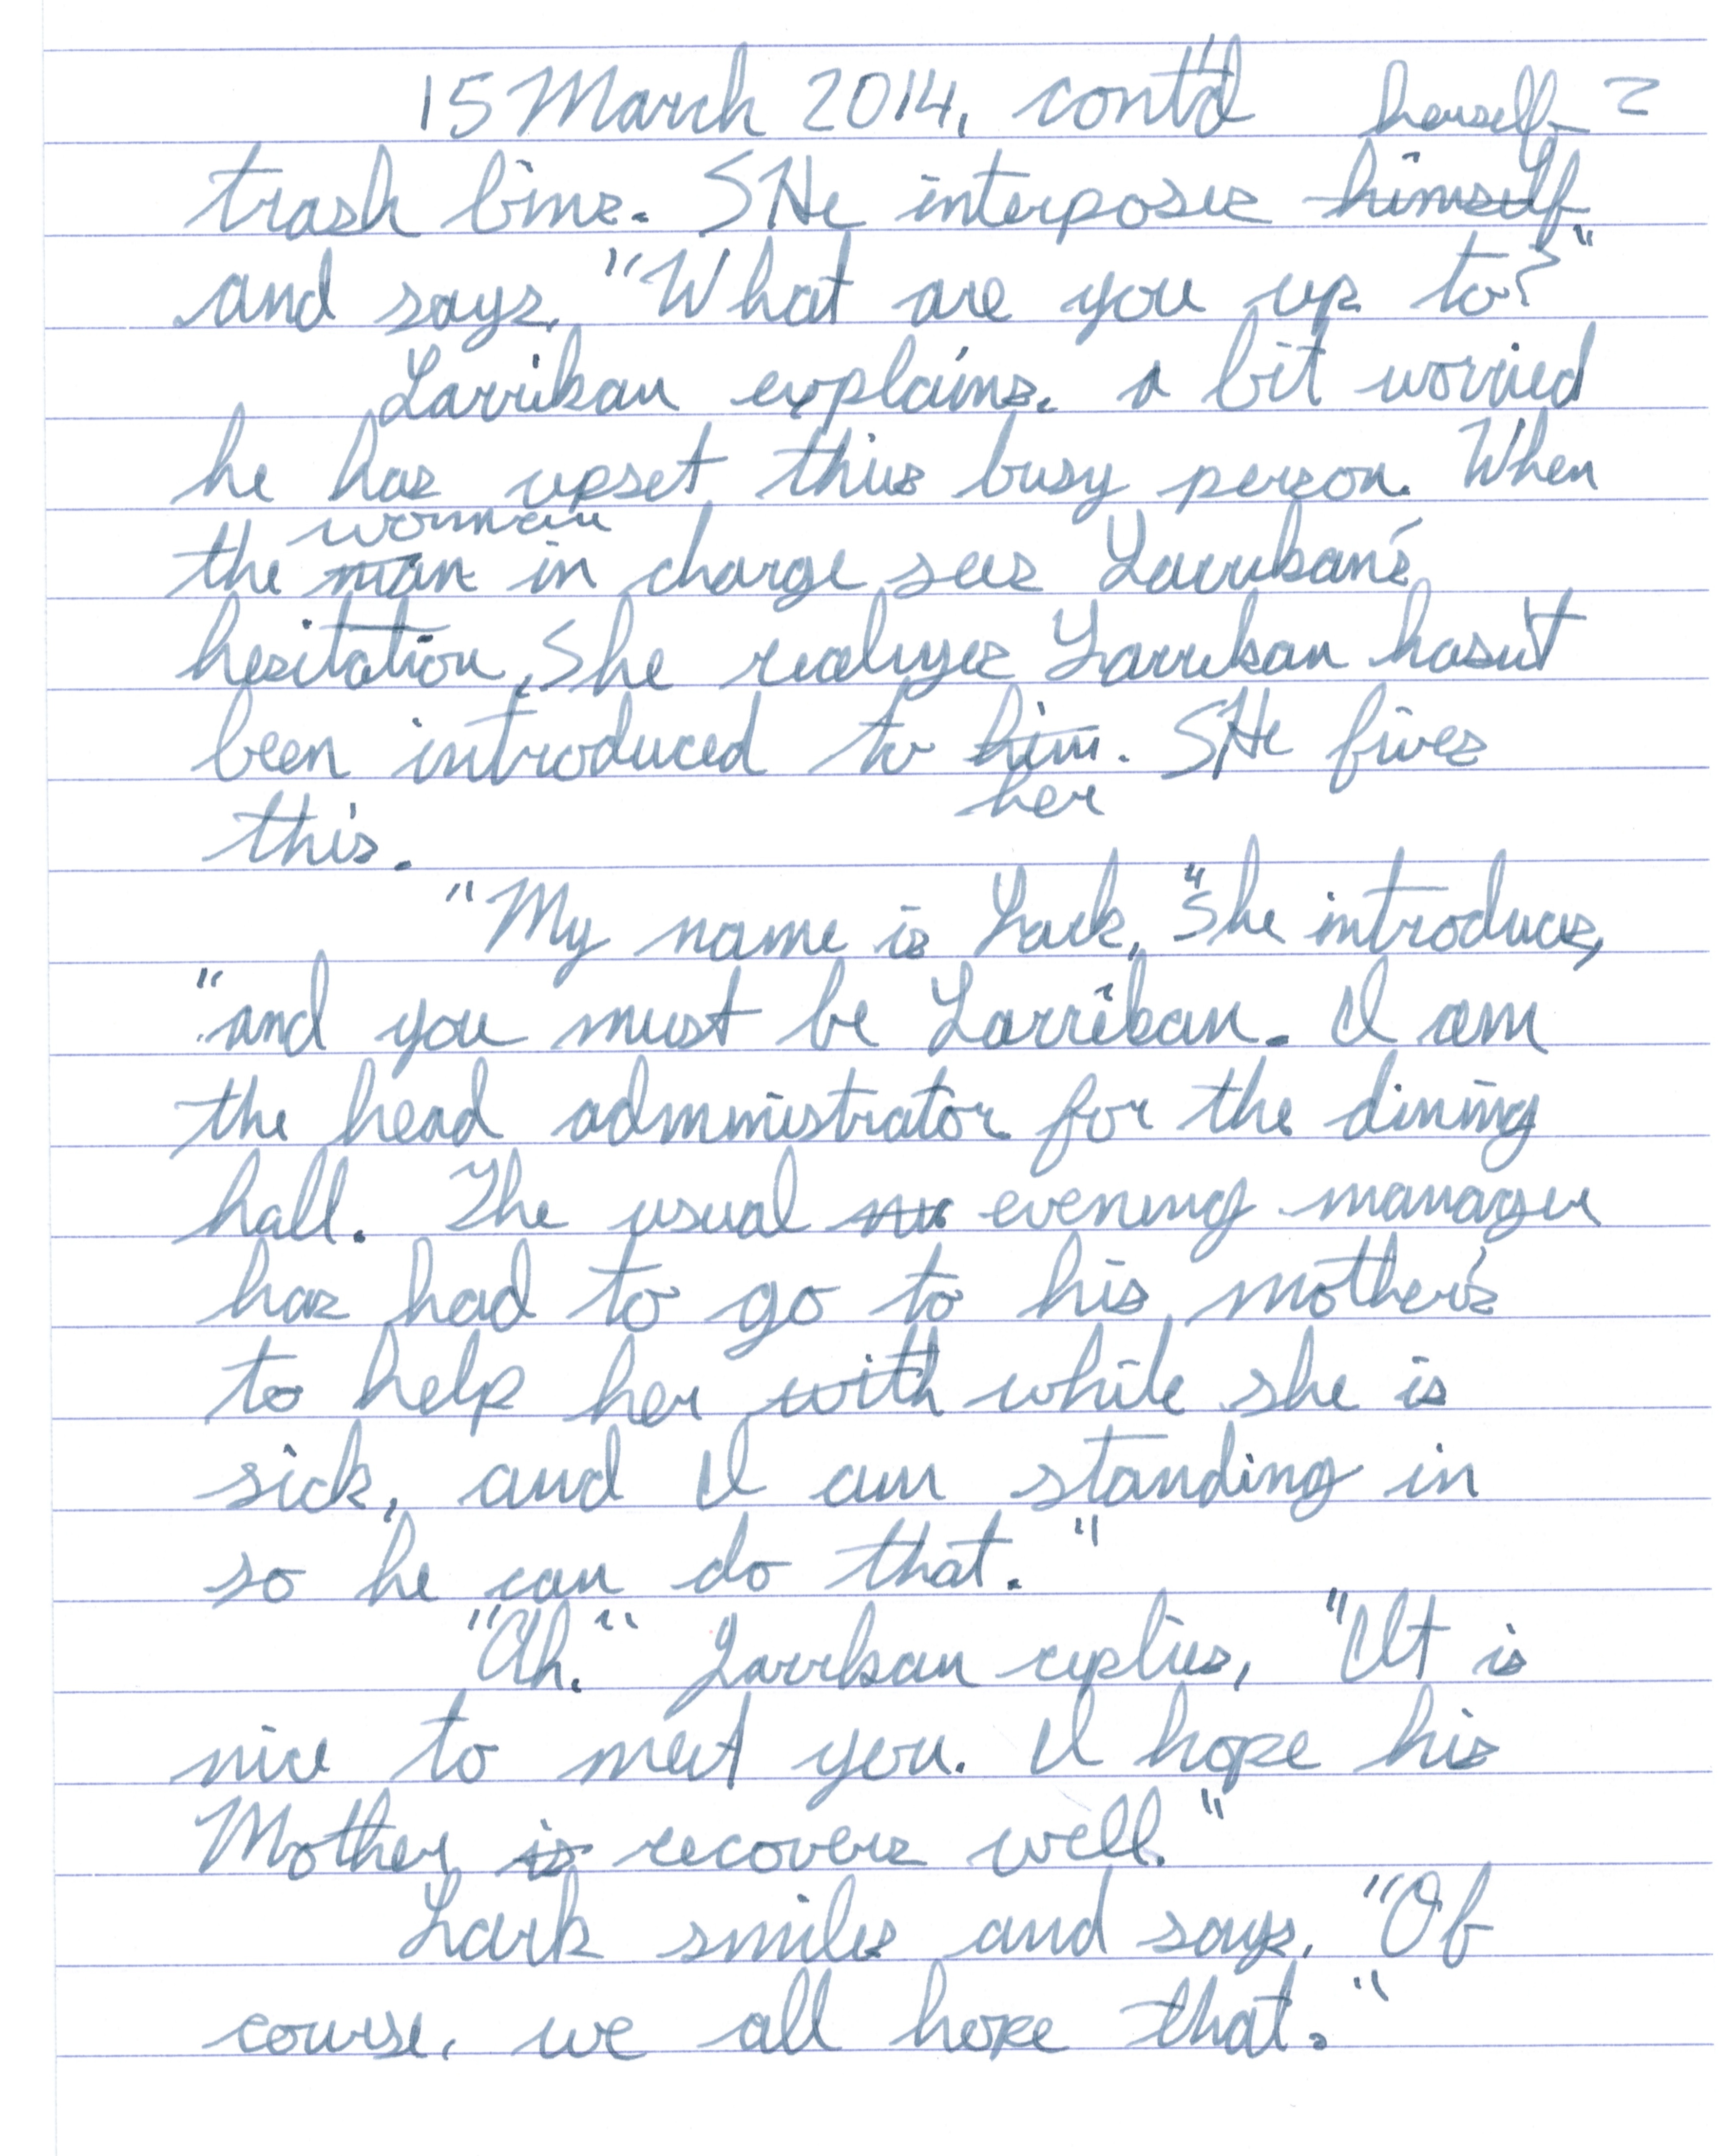 15 March 2014, cont'd herself 2
trash bins. SHe interposes himself
and says, "What are you up to?"
Larrikan explains, a bit worried
he has upset this busy person. When
woman
the man in charge sees Larrikan's
hesitation, She realizes Larrikan hasn't
been introduced to him. SHe fixes
her
this.
"My name is Lark," She introduces,
"and you must be Larrikan. I am
the head administrator for the dining
hall. The usual evening manager
has had to go to his mother's
to help her with while she is
sick, and I am standing in
so he can do that."
"Ah." Larrikan replies, "It is
nice to meet you. I hope his
Mother is recovers well."
Lark smiles and says, "Of
course, we all hope that."